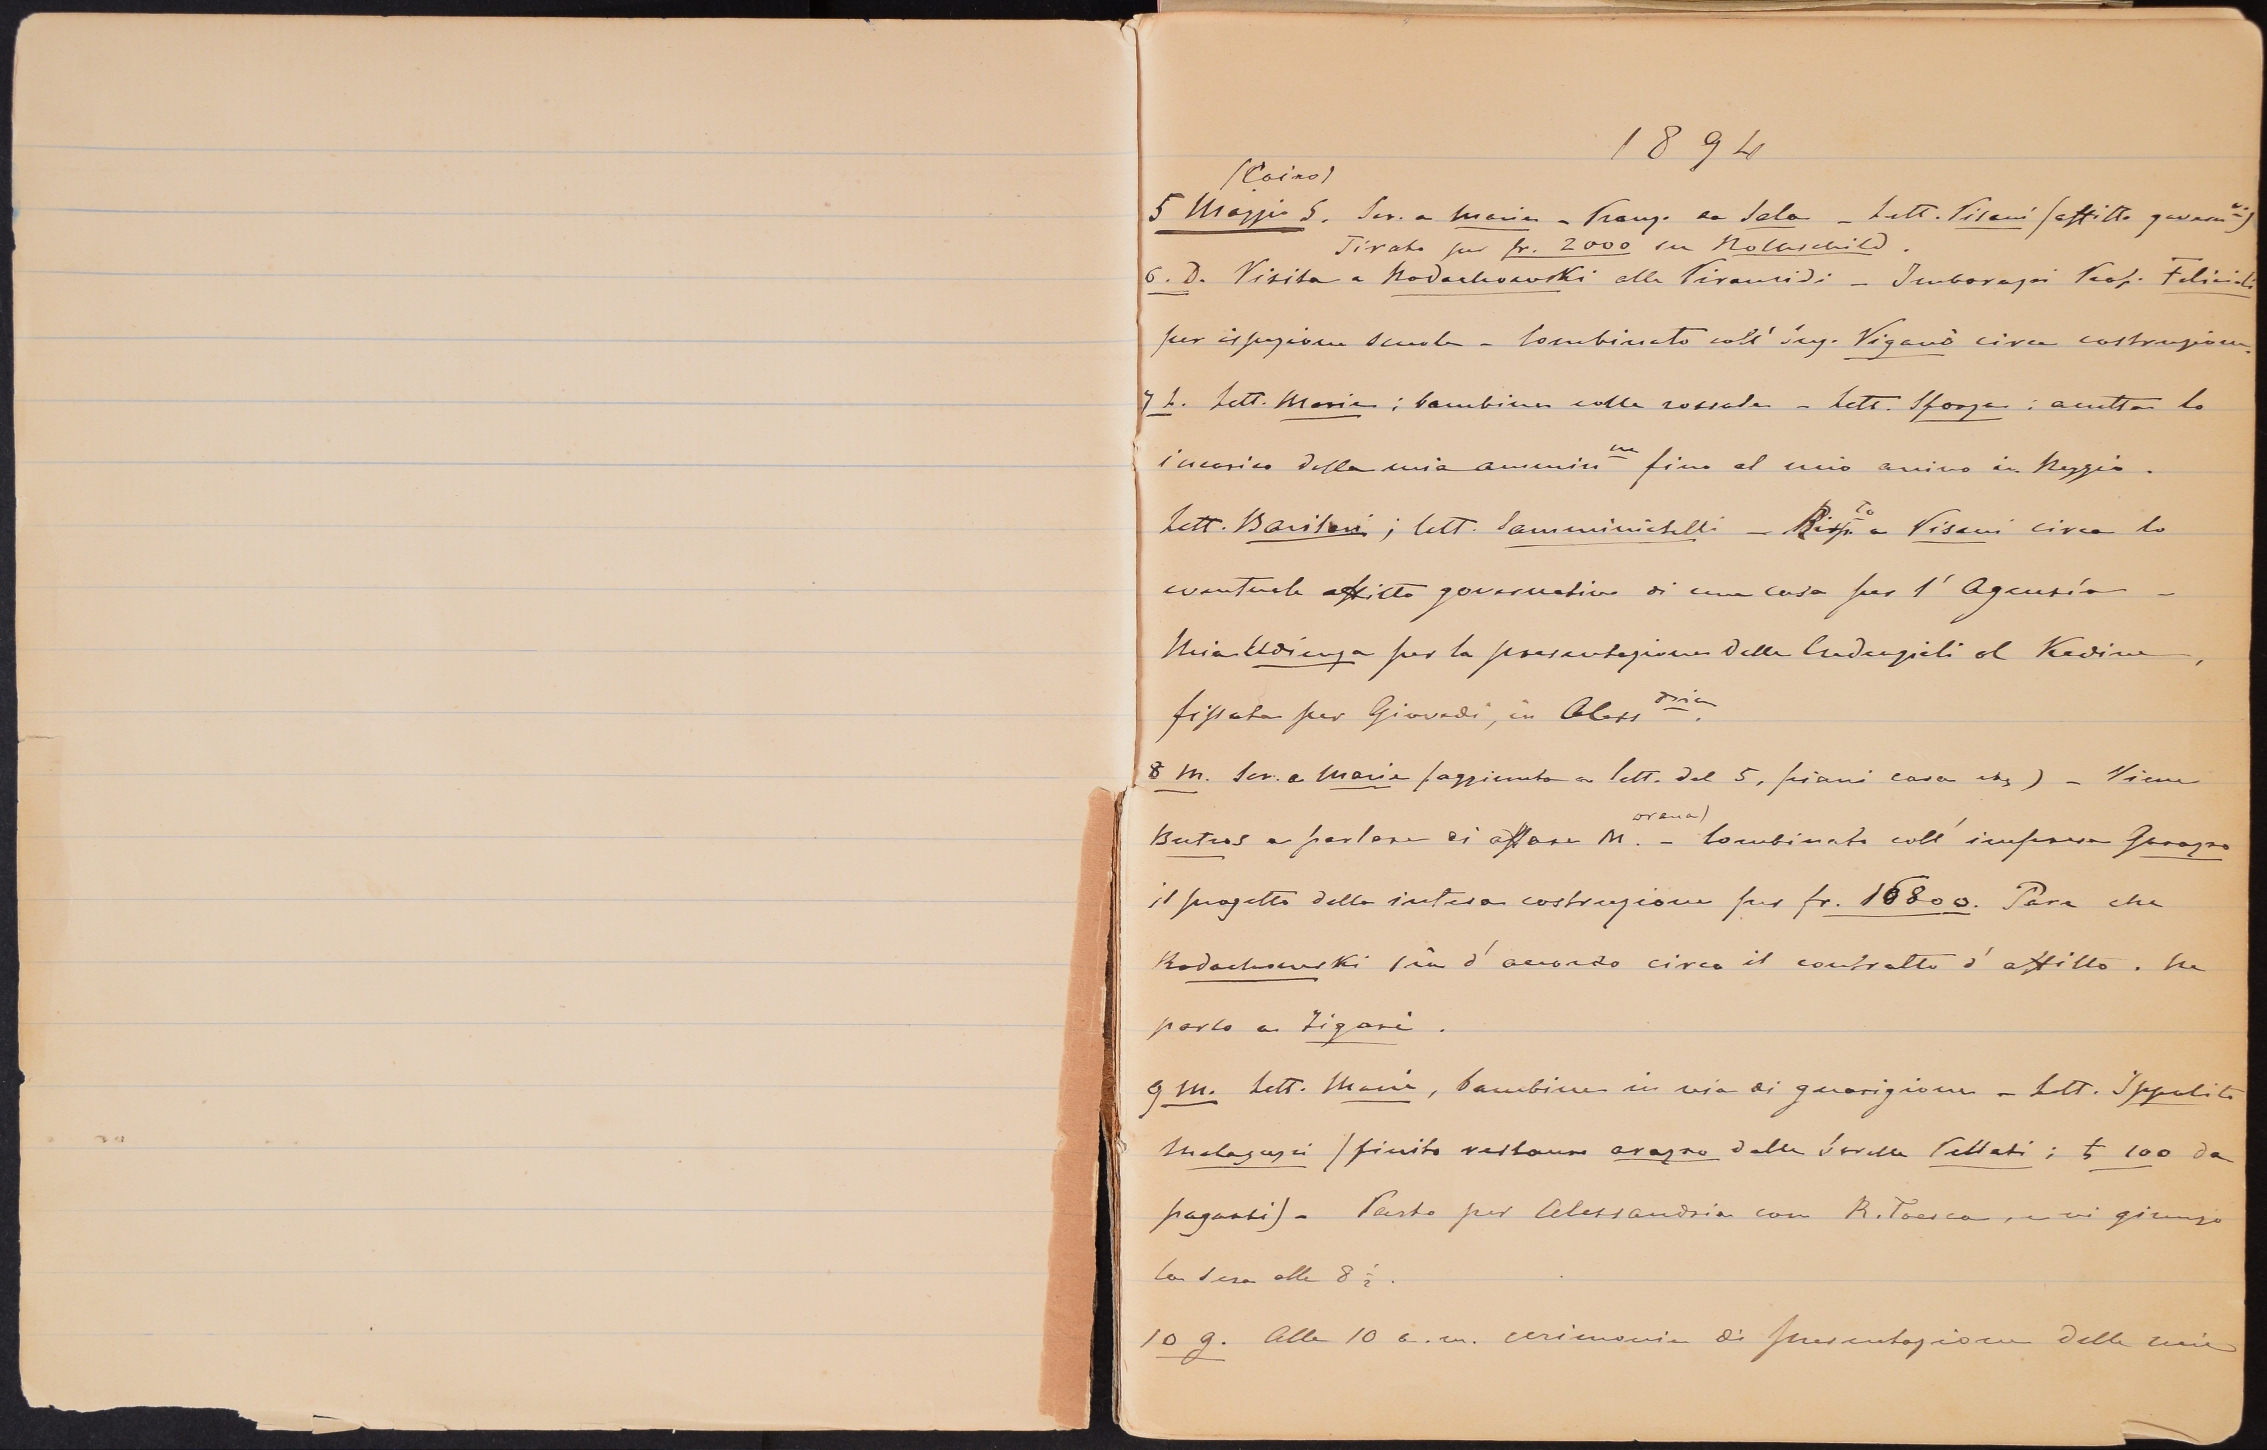 1894
(Cairo)
5 Maggio S. Scr. a Maria - Pranzo da Sala - Lett. Pisani (affitto govern.vo)
Tirato per fr. 2000 su Rothschild.
6. D. Visita a Rodachowski alle Piramidi - Imbarazzi Prof.
per ispezione scuola - Combinato coll' Ing. Viganò circa costruzione.
7 L. Lett. Maria; bambina colla rosolia - Lett. Sforza: accetta lo
incarico della mia ammin.ne fino al mio arrivo in Reggio.
Lett. Barilari; lett. Samminiatelli - Risp.to a Pisani circa lo
eventuale affitto governativo di una casa per l' Agenzia -
Mia Udienza per la presentazione delle Credenziali al Kedive,
fissata per Giovedì, in Aless.dria.
8 M. Scr. a Maria (aggiunta a lett. del 5, piani casa etc) - Viene
Butros a parlare di affare M. - Combinato coll' impresa Garozzo
il progetto della intesa costruzione per fr. 16800. Pare che
Rodachowski sia d' accordo circa il contratto d' affitto. Ne
parlo a Zigarè.
9 M. Lett. Maria, bambina in via di guarigione - Lett. Ippolito
Malaguzzi (finito restauro arazzo dalle Sorelle Pellati; £ 100 da
pagarsi) - Parto per Alessandria con R. Toesca, e vi giungo
la sera alle 8 1/2.
10 G. Alle 10 a.m. cerimonia di presentazione delle mie